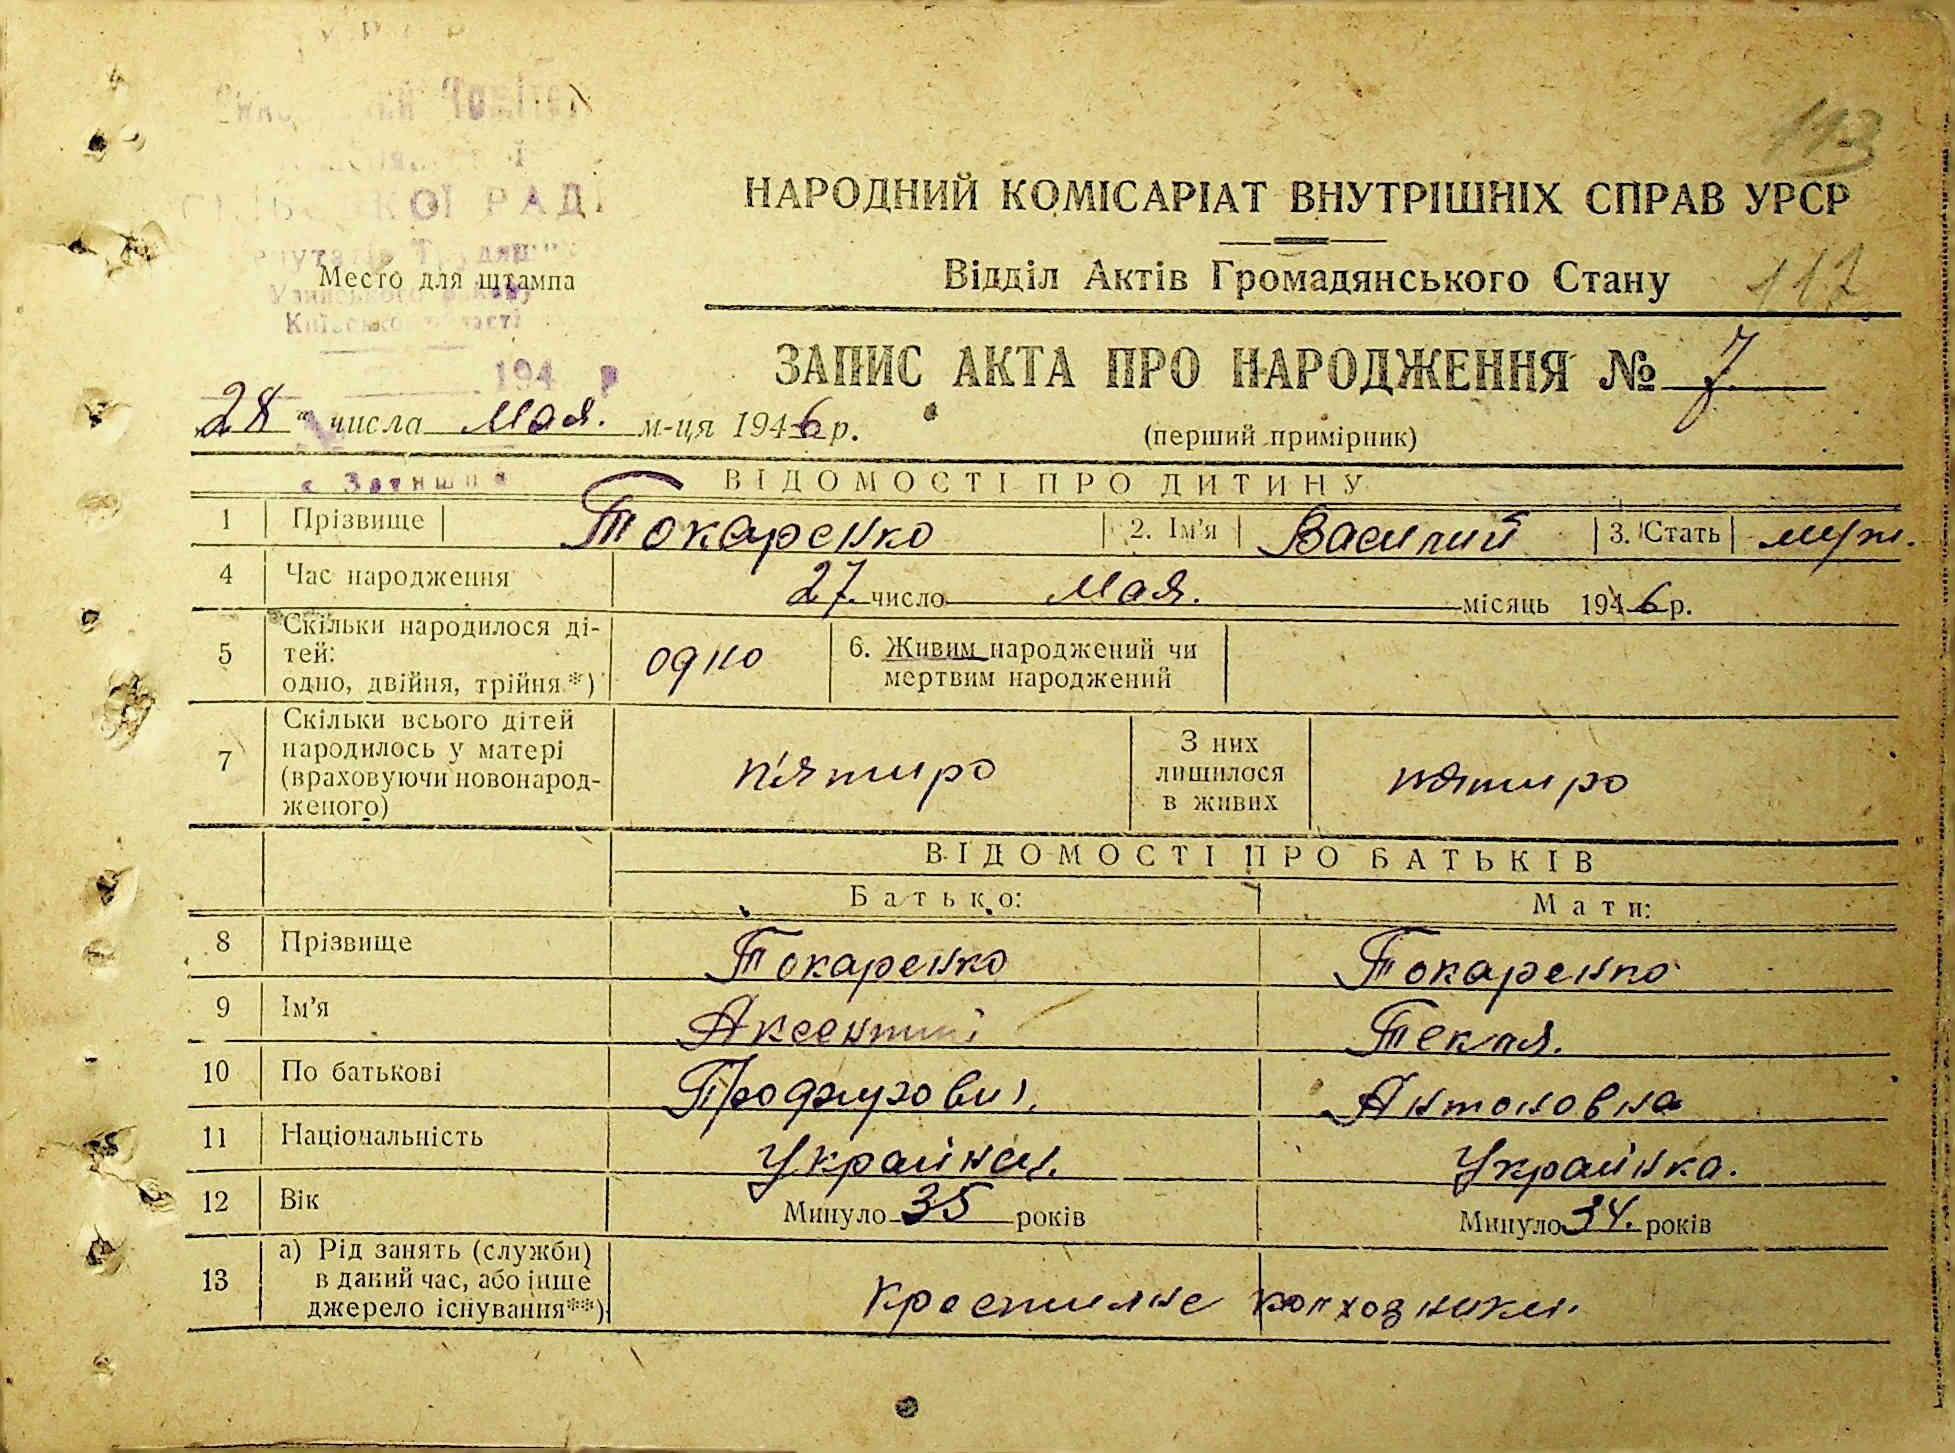 113
НАРОДНИЙ КОМІСАРІАТ ВНУТРІШНІХ СПРАВ УРСР
КОЇ РАД
Место для штампа
Відділ Актів Громадянського Стану
117
194 р
ЗАПИС АКТА ПРО НАРОДЖЕННЯ № 7
28 " числа мая. м-ця 1946 р.
(перший примірник)
ВІДОМОСТІ ПРО ДИТИНУ
1 Прізвище Токаренко 2. Ім'я Василий 3. Стать муж.
4 Час народження 27. число мая. місяць 1946 р.
5 Скільки народилося ді-
тей:
одно, двійня, трійня *)
одно
6. Живим народжений чи
мертвим народжений
7 Скільки всього дітей
народилось у матері
(враховуючи новонарод-
женого)
п'ятиро
З них
лишилося
в живих
пятиро
ВІДОМОСТІ ПРО БАТЬКІВ
Батько: Мати:
8 Прізвище Токаренко Токаренко
9 Ім'я Аксентий Текля.
10 По батькові Антоновна
11 Національність Украинец. Украинка.
12 Вік Минуло 35 років Минуло 34. років
13 а) Рід занять (служби)
в даний час, або інше
джерело існування**)
крестияне колхозники.